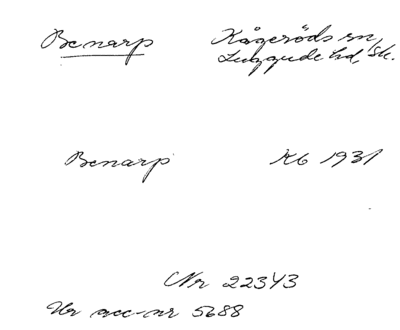 Benarp Kågeröds sn,
Luggude hd, Sk.
Benarp K6 1931
Nr 22343
Ur acc-nr 5688